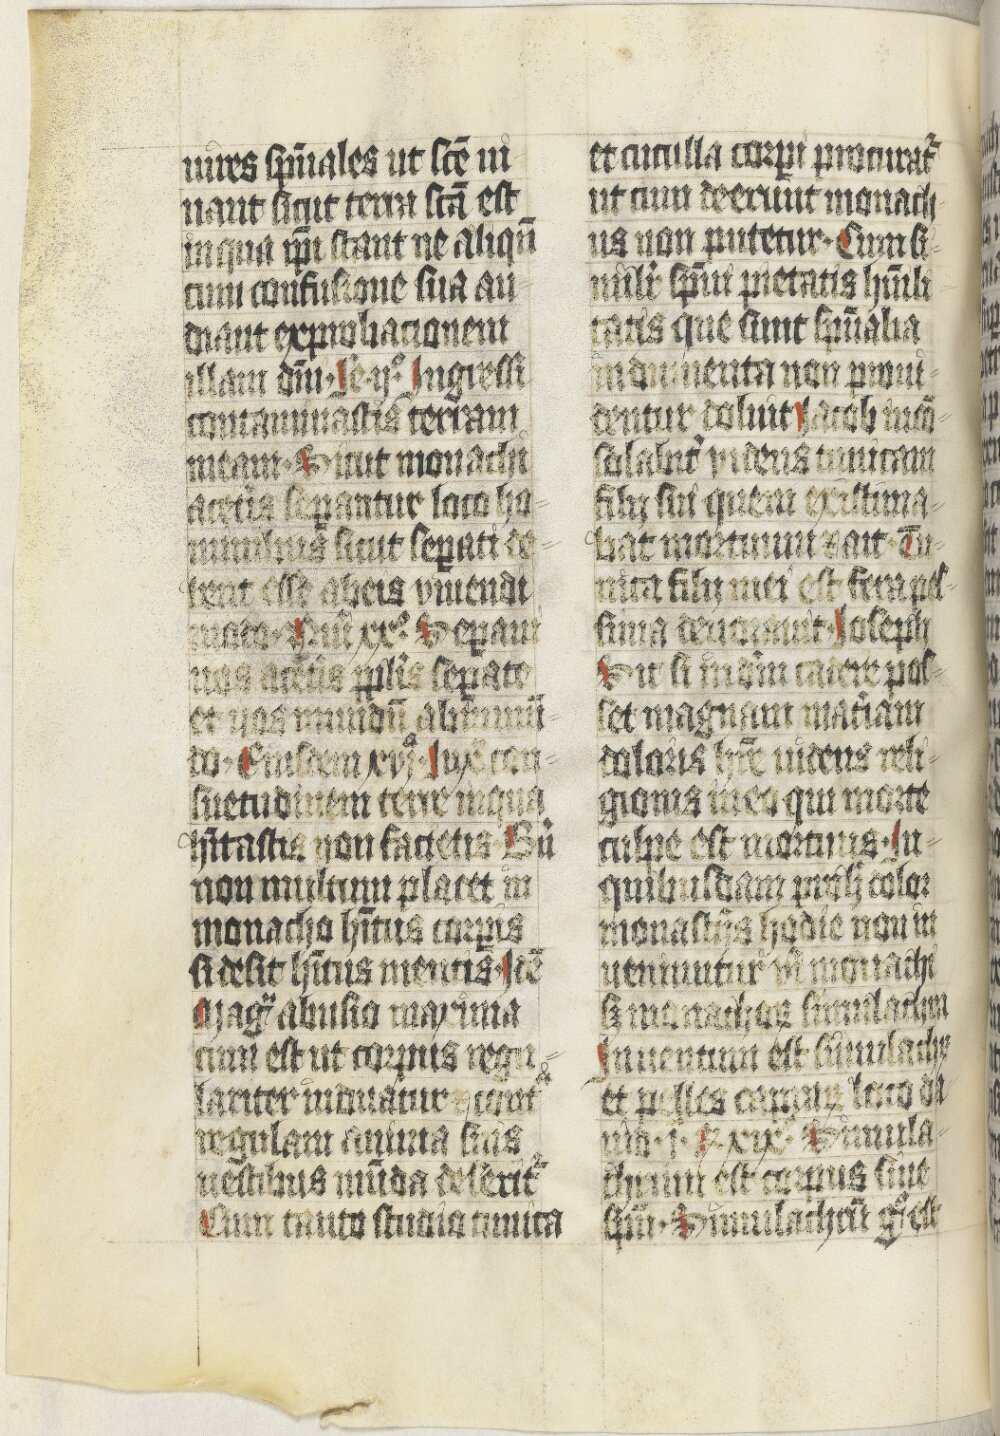 uires spūales ut scē ui
uant sicut terra scā est
in qua ip̄i stant ne aliqn̄
cum confusione sua au
diant exprobacionem
illam dn̄i. Ie. ij.º Ingressi
contaminastis terram
meam. Sicut monachi
a cet̄is sep̄antur loco ho
minibus sicut sep̄ati de
bent esse ab eis viuendi
modo. Nūi xx.º Separaui
uos a cet̄is pp̄lis separate
et uos mundū ab īmūn
do. Eiusdem xvj.º Iux̄ con
suetudinem terre in qua
hītastis non facietis. Sū
non multum placet in
monacho hītus corp̄is
si desit hītus mentis. Idē
Mag̃ abusio maxima
cum est ut corpus regu
lariter induatur et cont̄
regulam anima suis
uestibus nūda deserit̄
Cum tanto studio tunica
et cuculla corpi procurat̄
ut cum deerunt monach
us non putetur. Cum si
milr̄ spūi pietatis hūili
tatis que sunt spūalia
indumenta non proui
dentur doluit Iacob incō
solabilr̄ videns tunicam
filij sui quem existima
bat mortuum et ait. Tu
nica filij mei est fera pes
sima deuorauit Ioseph
Sic si in dm̄ cadere pos
set magnam mat̄iam
doloris hr̄e uidens reli
gionis in eo qui morte
culpe est mortuus. In
quibusdam
monast̄ijs hodie non in
ueniuntur ūi monachi
sꝫ monachoꝝ simulachra
Inuentum est simulachꝝ
et pelles capraꝝ loco da
uid. j. R xix.º Simula
chrum est corpus sine
spū. Simulachrū g̃ est